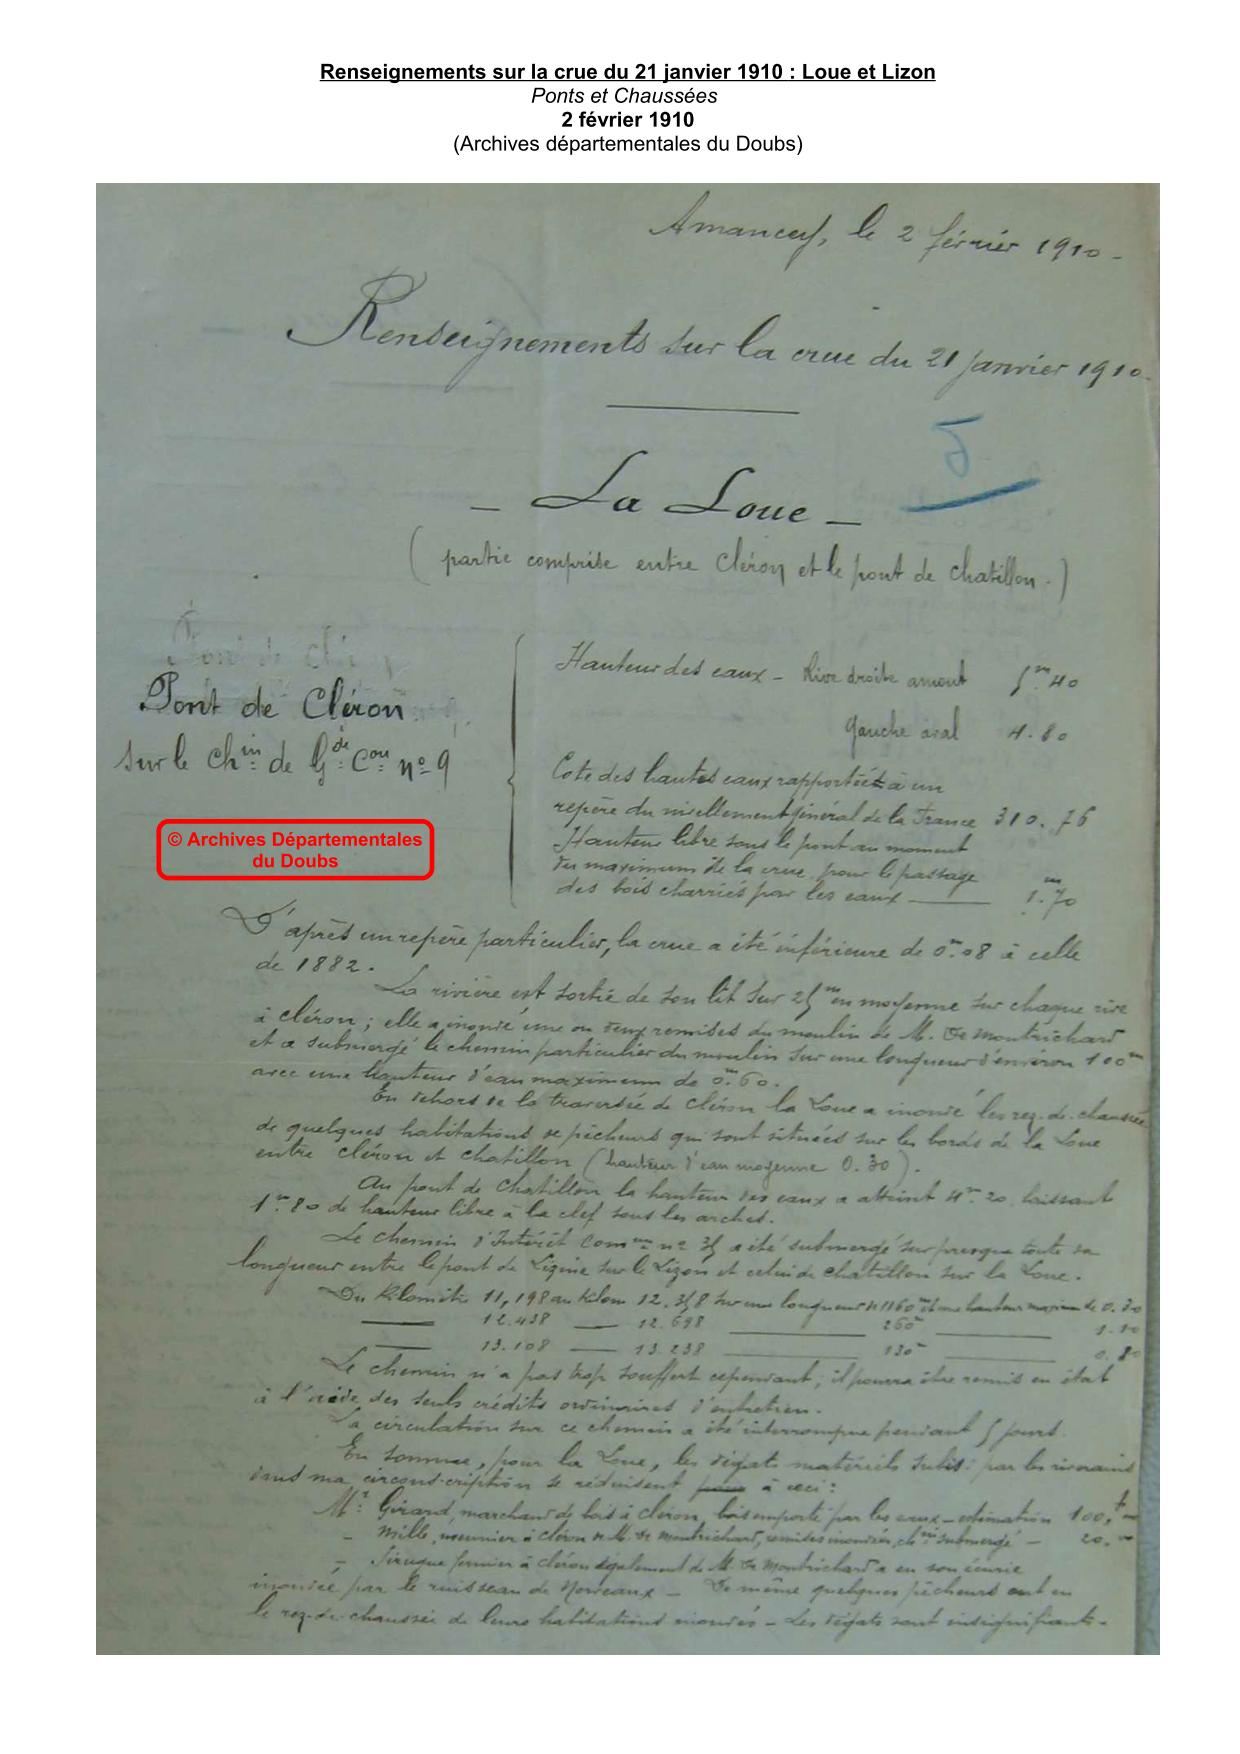 Renseignements sur la crue du 21 janvier 1910 : Loue et Lizon
Ponts et Chaussées
2 février 1910
(Archives départementales du Doubs)
Amancey, le 2 février 1910 -
Renseignements sur la crue du 21 janvier 1910.
5
- La Loue -
(partie comprise entre Cléron et le pont de Chatillon.)
Pont de Cléron
sur le Chin de Gde Cou no 9
© Archives Départementales
du Doubs
Hauteur des eaux - Rive droite amont 5m.40
gauche aval 4.80
Cote des hautes eaux rapportée à un
repère du nivellement général de la France 310.76
Hauteur libre sous le pont au moment
du maximum de la crue, pour le passage
des bois charriés par les eaux 1m.70
D'après un repère particulier, la crue a été inférieure de 0m.08 à celle
de 1882.
La rivière est sortie de son lit sur 25m en moyenne sur chaque rive
à Cléron ; elle a inondé une ou deux remises du moulin de M. de Montrichard
et a submergé le chemin particulier du moulin sur une longueur d'environ 100m
avec une hauteur d'eau maximum de 0m.60.
En dehors de la traversée de Cléron la Loue a inondé les rez-de-chaussée
de quelques habitations de pêcheurs qui sont situées sur les bords de la Loue
entre Cléron et Chatillon (hauteur d'eau moyenne 0.30).
Au pont de Chatillon la hauteur des eaux a atteint 4m.20 laissant
1m.80 de hauteur libre à la clef sous les arches.
Le chemin d'Intérêt Commun no 35 a été submergé sur presque toute sa
longueur entre le pont de Lizine sur le Lizon et celui de Chatillon sur la Loue.
Du Kilomètre 11,198 au Kilom 12.358 sur une longueur de 1160m et une hauteur maxium de 0.30
12.438 — 12.698 260m 1.10
13.108 — 13.238 130m 0.80
Le chemin n'a pas trop souffert cependant ; il pourra être remis en état
à l'aide des seuls crédits ordinaires d'entretien.
La circulation sur ce chemin a été interrompue pendant 5 jours.
En somme, pour la Loue, les dégats matériels subis par les riverains
dans ma circonscription se réduisent à ceci :
Mr Girard, marchand de bois à Cléron, bois emporté par les eaux - estimation 100f
- Mille, meunier à Cléron de M. de Montrichard, remises inondées, chin submergé - 20.
- fermier à Cléron également de M. de Montrichard a eu son écurie
inondée par le ruisseau de Norvaux - De même quelques pêcheurs ont eu
le rez-de-chaussée de leurs habitations inondés - Les dégats sont insignifiants -